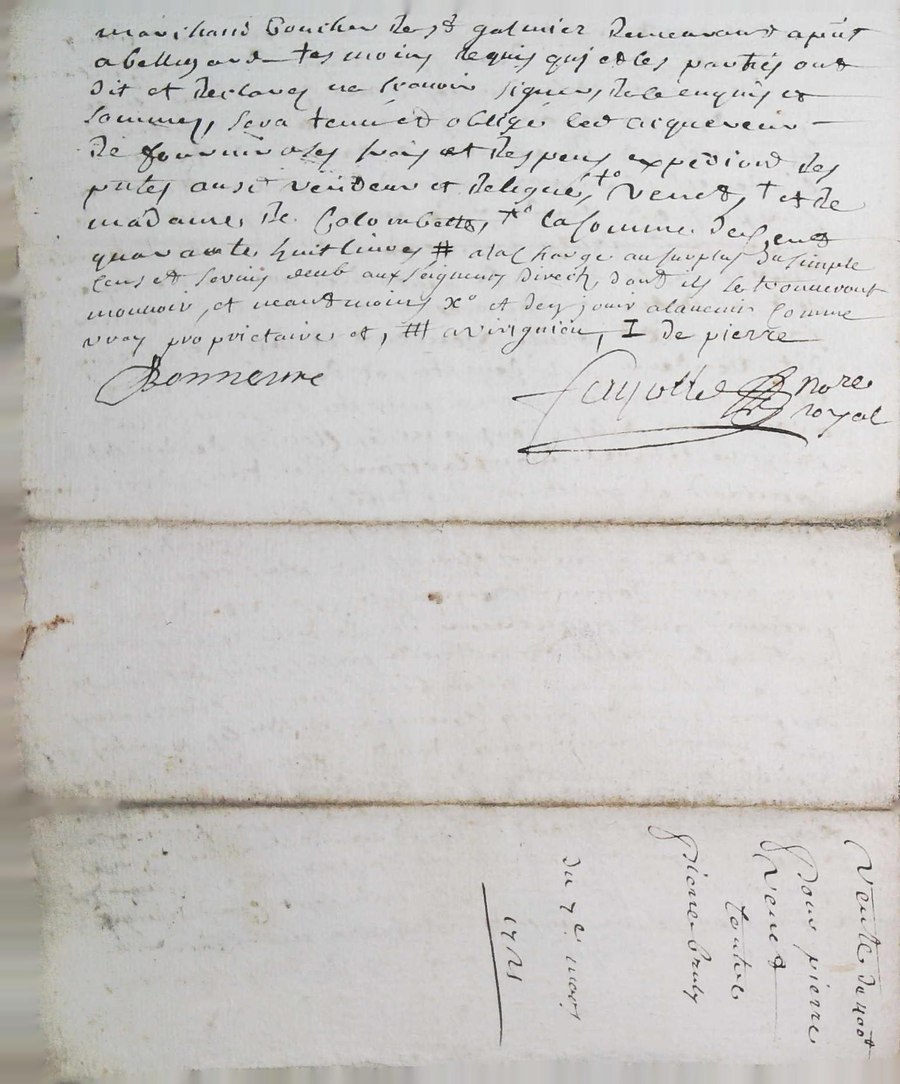 marchand boucher de st galmier demeurant a put
a bellegarde tesmoins requis qui et les parties ont
dit et declaré ne scavoir signer, de ce enquis et
sommes, sera tenu et obligé led acquereur
de fournir a ses frais et despens expedions des
pntes aud vendeur et delegué, Venet, et de
madame de Colombette, la somme de cent
quarante huit livres # a la charge au surplus du simple
cens et servis deub aux seigneurs directz dont ils se trouveront
mouvoir, et neantmoins x° et des jours a lavenir comme
vray proprietaire et, a virignieu, I de pierre
Bonnerme
Fayolle nore
royal
Vente du 400tt
Pour pierre
Venet
Contre
Pierre bruly
du 7e mars
1721